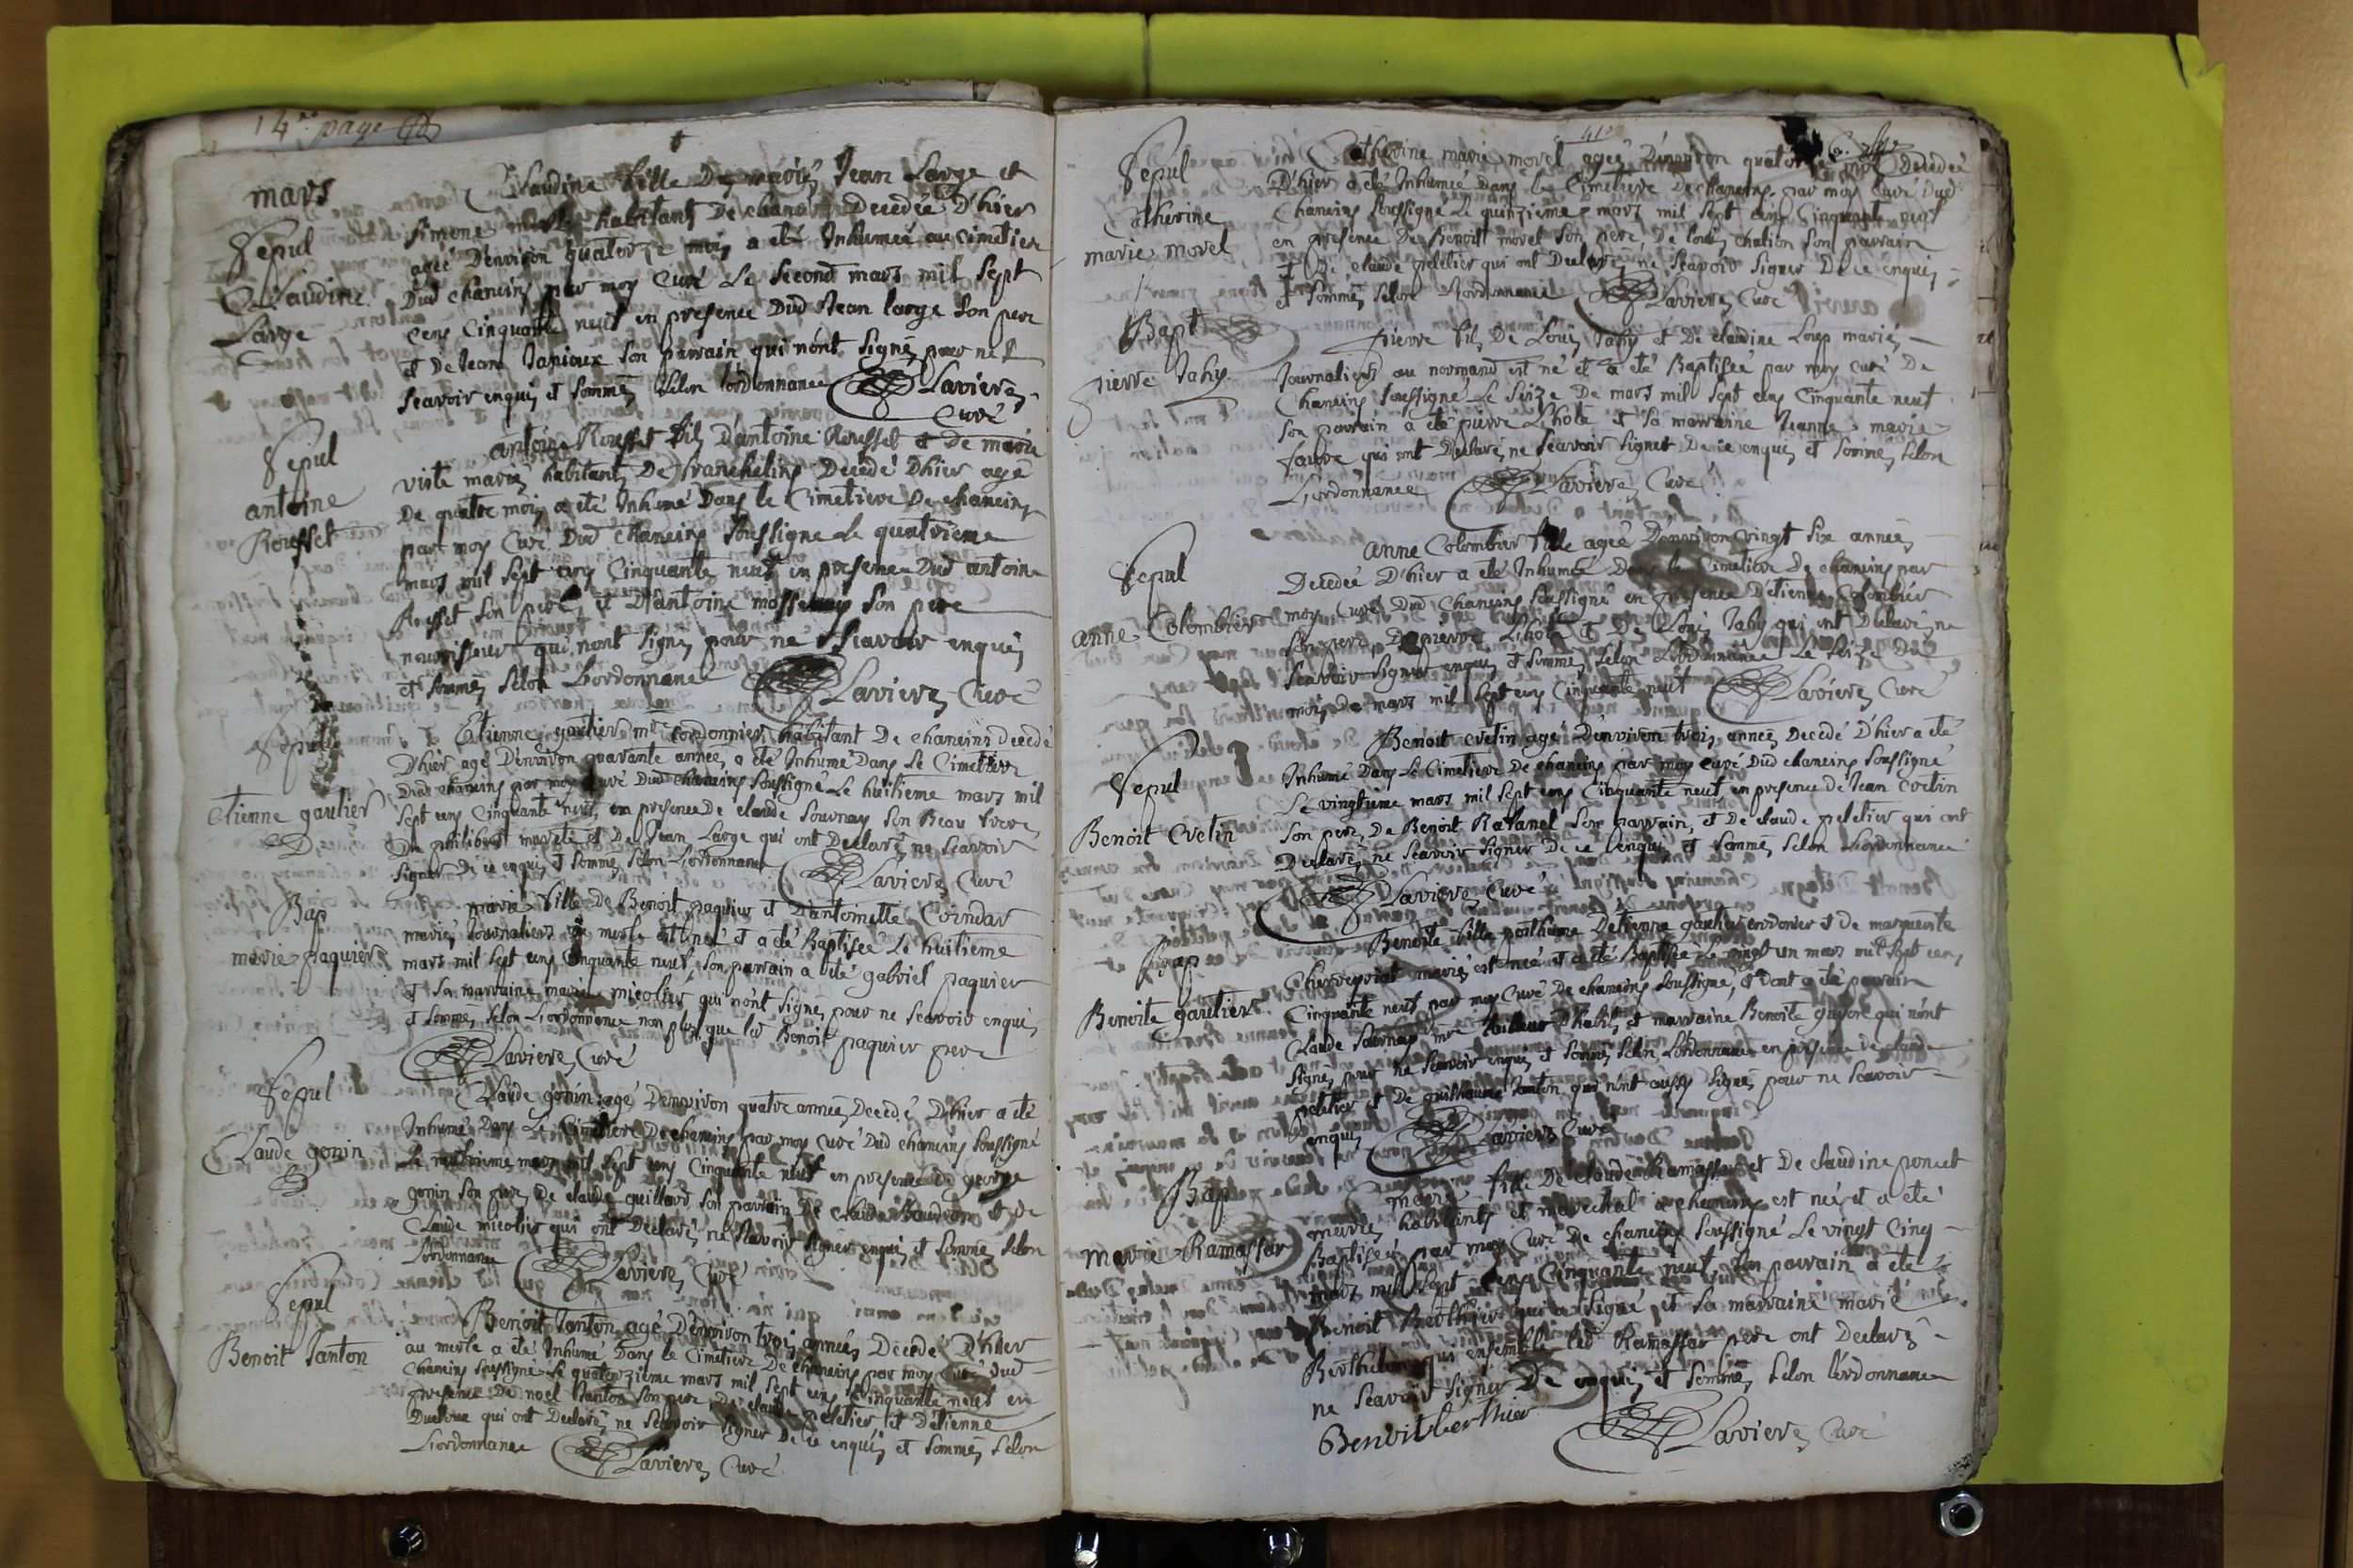 14e page
mars
Sepul
Claudine
Large
Claudine fille De mariés Jean Large et
Simone habitants De chaneins Decedée D'hier
ageé Denviron quatorze mois a eté Inhumeé au cimetier
Dud chaneins par moy Curé Le Second mars mil Sept
cens Cinquante neuf en presence Dud Jean large Son pere
et De Jean Janioux Son parrain qui n'ont Signés pour ne le
Scavoir enquis et Sommés Selon l'ordonnance Laviere,
Curé
Sepul
antoine
Rousset
antoine Rousset fils D'antoine Rousset et De marie
viste mariés habitants De franchelins Decedé D'hier agé
De quatre mois a eté Inhumé Dans le Cimetiere De chaneins
par moy Curé Dud Chaneins Soussigné Le quatrieme
mars mil Sept cens Cinquante neuf en presence Dud antoine
Rousset Son pere, et D'antoine Son pere
nourrisseur qui n'ont Signés pour ne Scavoir enquis
et Sommés Selon L'ordonnance Laviere, Curé
Sepul
etienne gautier
Etienne gautier mtre Cordonnier habitant De chaneins decedé
D'hier agé D'environ quarante années a eté Inhumé Dans Le Cimetiere
Dud chaneins par moy Curé Dud chaneins Soussigné Le huitieme mars mil
Sept cens Cinquante neuf, en presence De claude Sournay Son Beau frere,
De philibert et De Jean Large qui ont Declaré ne Scavoir
Signer De ce enquis et Sommés Selon L'ordonnance Laviere, Curé
Bap
marie paquier
marie fille de Benoit paquier et D'antoinette Coindar
mariés Journaliers au merle est née et a eté Baptisée Le huitieme
mars mil Sept cens Cinquante neuf, Son parrain a été gabriel paquier
et Sa marraine marie micolier qui n'ont Signés pour ne Scavoir enquis,
et Sommés Selon L'ordonnance non plus que led Benoit paquier pere
Laviere, Curé
Sepul
Claude gonin
Claude gonin agé D'environ quatre années, Decedé D'hier a eté
Inhumé Dans Le Cimetiere De chaneins par moy Curé Dud chaneins Soussigné
Le mars mil Sept cens Cinquante neuf en presence De george
gonin Son pere, De claude guillard Son parrain De claude Baudron et De
Claude micolier qui ont Declarés ne Scavoir Signer enquis et Sommés Selon
L'ordonnance Laviere, Curé
Sepul
Benoit Janton
Benoit Janton agé D'environ trois années Decedé D'hier
au merle a eté Inhumé Dans le Cimetiere De chaneins par moy Curé Dud
Chaneins Soussigné Le quatorzieme mars mil Sept cens Cinquante neuf en
presence De noel Janton Son pere De claude peletier et D'étienne
qui ont Declarés ne Scavoir Signer De ce enquis et Sommés Selon
L'ordonnance Laviere, Curé
41e
Sepul
Catherine
marie morel
Catherine marie morel ageé D'environ quatorze mois Decedeé
D'hier a eté Inhumeé Dans le Cimetiere De chaneins par moy Curé Dud
Chaneins Soussigné Le quinzieme mars mil Sept cens Cinquante neuf
en presence De Benoit morel Son pere, De louis chalion Son parrain
De claude peletier qui ont Declaré ne Scavoir Signer De ce enquis,
et Sommés Selon L'ordonnance Laviere, Curé
Bapt
pierre Jahy
pierre fils De Louis Jahy et De claudine Loup mariés,
Journaliers au normand est né et a eté Baptiseé par moy curé De
Chaneins Soussigné Le Seize De mars mil Sept cens Cinquante neuf
Son parrain a eté pierre Lhote et Sa marraine Jeanne marie
faure qui ont Declarés ne Scavoir Signer De ce enquis et Sommés Selon
L'ordonnance Laviere, Curé
Sepul
anne Colombier
anne Colombier fille ageé D'environ vingt Six années
Decedeé D'hier a eté Inhumeé Dans le Cimetiere De chaneins par
moy Curé Dud Chaneins Soussigné en presence D'étienne Colombier
Son pere, De pierre Lhote et De Louis Jahy qui ont Declarés ne
Scavoir Signer enquis et Sommés Selon L'ordonnance Le Seize Du
mois de mars mil Sept cens Cinquante neuf Laviere, Curé
Sepul
Benoit Cretin
Benoit Cretin agé D'environ trois années Decedé D'hier a eté
Inhumé Dans Le Cimetiere De chaneins par moy curé Dud chaneins Soussigné
Le vingtieme mars mil Sept cens Cinquante neuf, en presence De Jean Cretin
Son pere, De Benoit Ratanel Son parrain, et De claude peletier qui ont
Declarés ne Scavoir Signer De ce enquis et Sommés Selon L'ordonnance
Laviere, Curé
Bap
Benoite gautier
Benoite fille posthume D'étienne gautier cordonier et De marguerite
mariés est née et a eté Baptiseé Le vingt un mars mil Sept cens
Cinquante neuf par moy Curé De chaneins Soussigné, et Dont a eté parrain
Claude Sournay mtre tailleur D'habits et marraine Benoite guyone qui n'ont
Signés pour ne Scavoir enquis et Sommés Selon L'ordonnance en presence de claude
peletier et De guilliaume Janton qui n'ont aussy Signés pour ne Scavoir
enquis Laviere, Curé
Bap
marie Ramassar
marie fille De claude Ramassar et De claudine poncet
mariés habitants et marechal a chaneins est née et a eté
Baptiseé par moy Curé De chaneins Soussigné Le vingt Cinq
mars mil Sept cens Cinquante neuf, Son parrain a eté
Benoit Berthier qui a Signé et Sa marraine marie
Berthelon qui ensemble led Ramassar pere ont Declarés
ne Scavoir Signer De enquis et Sommés, Selon l'ordonnance
Benoit berthier Laviere, Curé